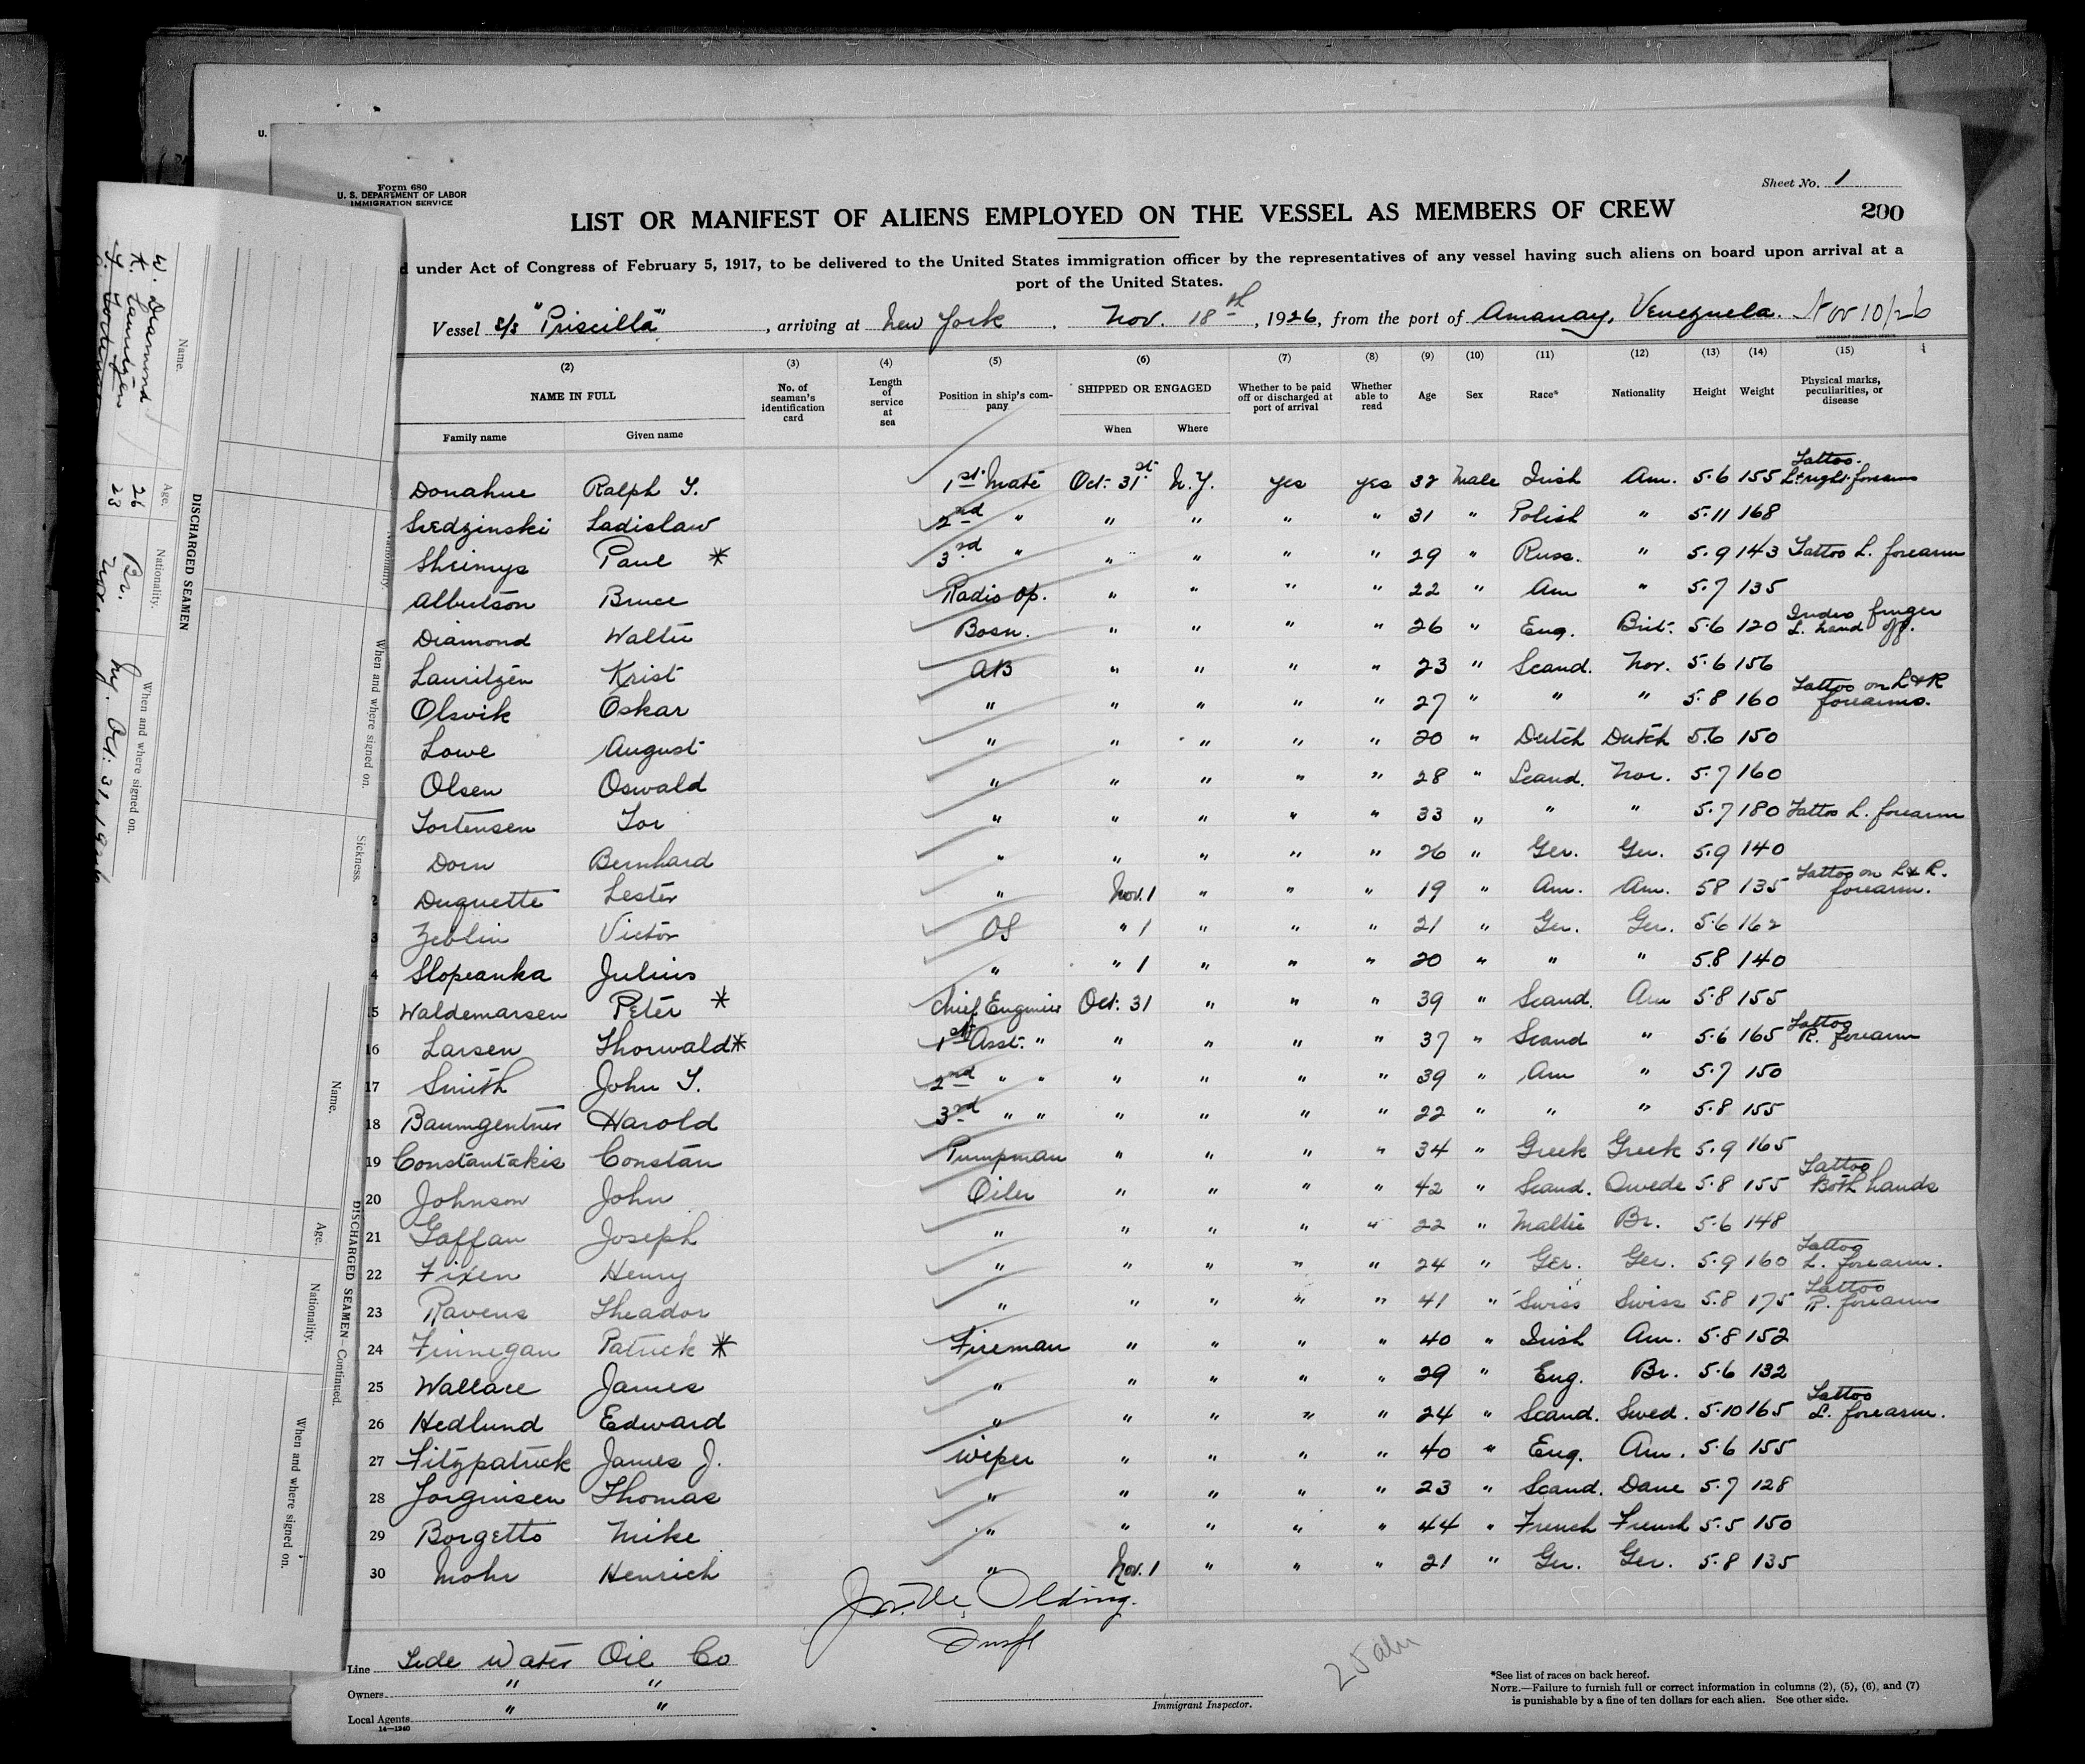 U.
Form 680
U. S. DEPARTMENT OF LABOR
IMMIGRATION SERVICE
Sheet No. 1
LIST OR MANIFEST OF ALIENS EMPLOYED ON THE VESSEL AS MEMBERS OF CREW
200
d under Act of Congress of February 5, 1917, to be delivered to the United States immigration officer by the representatives of any vessel having such aliens on board upon arrival at a
port of the United States.
Vessel S/S "Priscilla", arriving at New York, Nov. 18th, 1926, from the port of Amanay, Venezuela. Nov 10/26
(2) (3) (4) (5) (6) (7) (8) (9) (10) (11) (12) (13) (14) (15)
NAME IN FULL No. of seaman's identification card Length of service at sea Position in ship's company SHIPPED OR ENGAGED Whether to be paid off or discharged at port of arrival Whether able to read Age Sex Race* Nationality Height Weight Physical marks, peculiarities, or disease
Family name Given name When Where
Donahue Ralph T. 1st Mate Oct. 31st N.Y. yes yes 32 Male Irish Am. 5.6 155 Tattoo. L+right forearms
Sredzinski Ladislaw 2nd " " " " " 31 " Polish " 5.11 168
Shrimys Paul * 3rd " " " " " 29 " Russ. " 5.9 143 Tattoo L. forearm
Albertson Bruce Radio Op. " " " " 22 " Am " 5.7 135
Diamond Walter Bosn. " " " " 26 " Eng. Brit. 5.6 120 Index finger L. hand off.
Lauritzen Krist AB " " " " 23 " Scand. Nor. 5.6 156
Olsvik Oskar " " " " " 27 " " " 5.8 160 Tattoo on L & R forearms.
Lowe August " " " " " 20 " Dutch Dutch 5.6 150
Olsen Oswald " " " " " 28 " Scand. Nor. 5.7 160
Tortensen Tor " " " " " 33 " " " 5.7 180 Tattoo L. forearm
Dorn Bernhard " " " " " 26 " Ger. Ger. 5.9 140
2 Duquette Lester " Nov. 1 " " " 19 " Am. Am. 58 135 Tattoo on L & R. forearm.
3 Zeblin Victor OS " 1 " " " 21 " Ger. Ger. 5.6 162
4 Slopeanka Julius " " 1 " " " 20 " " " 5.8 140
15 Waldemarsen Peter * Chief Engineer Oct. 31 " " " 39 " Scand. Am 5.8 155
16 Larsen Thorwald * 1st Asst. " " " " " 37 " Scand " 5.6 165 Tattoo R. forearm
17 Smith John T. 2nd " " " " " " 39 " Am " 5.7 150
18 Baumgentner Harold 3rd " " " " " " 22 " " " 5.8 155
19 Constantakis Constan Pumpman " " " " 34 " Greek Greek 5.9 165
20 Johnson John Oiler " " " " 42 " Scand. Swede 5.8 155 Tattoo Both hands
21 Gaffan Joseph " " " " " 22 " Maltie Br. 5.6 148
22 Fixen Henry " " " " " 24 " Ger. Ger. 5.9 160 Tattoo L. forearm.
23 Ravens Theador " " " " " 41 " Swiss Swiss 5.8 175 Tattoo R. forearm
24 Finnegan Patrick * Fireman " " " " 40 " Irish Am. 5.8 152
25 Wallace James " " " " " 29 " Eng. Br. 5.6 132
26 Hedlund Edward " " " " " 24 " Scand. Swed. 5.10 165 Tattoo L. forearm.
27 Fitzpatrick James J. Wiper " " " " 40 " Eng. Am. 5.6 155
28 Jorginsen Thomas " " " " " 23 " Scand. Dane 5.7 128
29 Borgetto Mike " " " " " 44 " French French 5.5 150
30 Mohr Henrich " Nov. 1 " " " 21 " Ger. Ger. 5.8 135
Olding.
Insp
Line Tide Water Oil Co
Owners " "
Local Agents " "
14—1240
25 aln
Immigrant Inspector.
*See list of races on back hereof.
NOTE.—Failure to furnish full or correct information in columns (2), (5), (6), and (7)
is punishable by a fine of ten dollars for each alien. See other side.
DISCHARGED SEAMEN
Name. Age. Nationality. When and where signed on.
W. Diamond 26 Br. Ny. Oct. 31, 1926
K. Lauritzen 23 Nor.
T. Tortensen
Nationality. When and where signed on. Sickness.
DISCHARGED SEAMEN—Continued.
Name. Age. Nationality. When and where signed on.